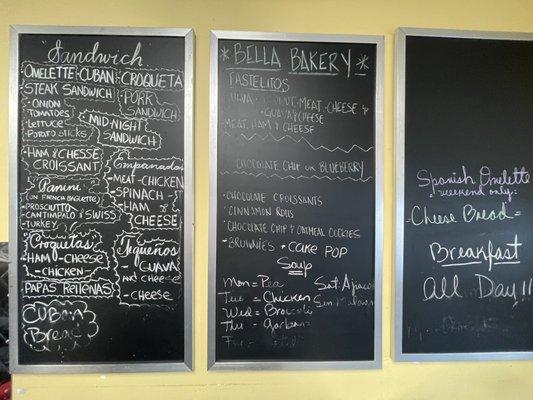 Sandwich
OMELETTE - CUBAN
CROQUETA
STEAK SANDWICH
- ONION
TOMATOES
- LETTUCE
- POTATO STICKS
PORK
SANDWICH
MID-NIGHT
SANDWICH
HAM & CHESSE
CROISSANT
Panini
ON FRENCH BAGUETTE
- PROSCIUTTO
- CANTIMPALO & SWISS
- TURKEY
Empanadas
- MEAT - CHICKEN
- SPINACH -
- HAM &
CHEESE
Croquetas
HAM - CHEESE
- CHICKEN
Tequeños
- GUAVA
AND CHEESE
- CHEESE
PAPAS RELLENAS
CUBAN
Bread
* BELLA BAKERY *
PASTELITOS
MEAT - CHEESE &
GUAVA & CHEESE
MEAT, HAM & CHEESE
CHOCOLATE CHIP OR BLUEBERRY
- CHOCOLATE CROISSANTS
- CINNAMON ROLLS
- CHOCOLATE CHIP & OATMEAL COOKIES
- BROWNIES - CAKE POP
Soup
Mon = Pea
Tue = Chicken
Wed = Brocoli
Thu =
Sat: Ajiaco
Sun:
Spanish Omelette
weekend only:
- Cheese Bread =
Breakfast
All Day!!